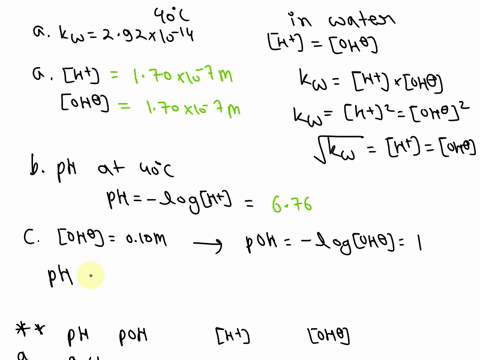 40°C
a. kw = 2.92×10⁻¹⁴
in water
[H⁺] = [OH⊖]
a. [H⁺] = 1.70×10⁻⁷m
[OH⊖] = 1.70×10⁻⁷m
kw = [H⁺]×[OH⊖]
kw = [H⁺]² = [OH⊖]²
√kw = [H⁺] = [OH⊖]
b. pH at 40°C
pH = -log[H⁺] = 6.76
C. [OH⊖] = 0.10m → pOH = -log[OH⊖] = 1
pH
** pH pOH [H⁺] [OH⊖]
a